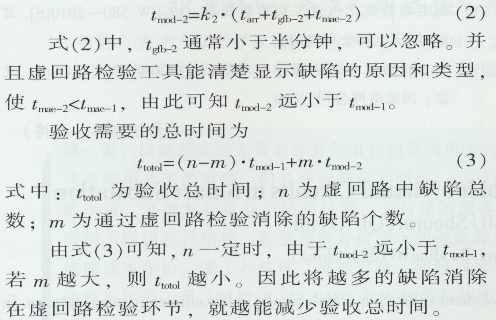 t_mod-2=k_2·(t_am+t_gfb-2+t_mae-2) (2)
式(2)中，t_gfb-2 通常小于半分钟，可以忽略。并
且虚回路检验工具能清楚显示缺陷的原因和类型，
使 t_mae-2<t_mae-1，由此可知 t_mod-2 远小于 t_mod-1。
验收需要的总时间为
t_totol=(n-m)·t_mod-1+m·t_mod-2 (3)
式中：t_totol 为验收总时间；n 为虚回路中缺陷总
数；m 为通过虚回路检验消除的缺陷个数。
由式(3)可知，n 一定时，由于 t_mod-2 远小于 t_mod-1，
若 m 越大，则 t_totol 越小。因此将越多的缺陷消除
在虚回路检验环节，就越能减少验收总时间。